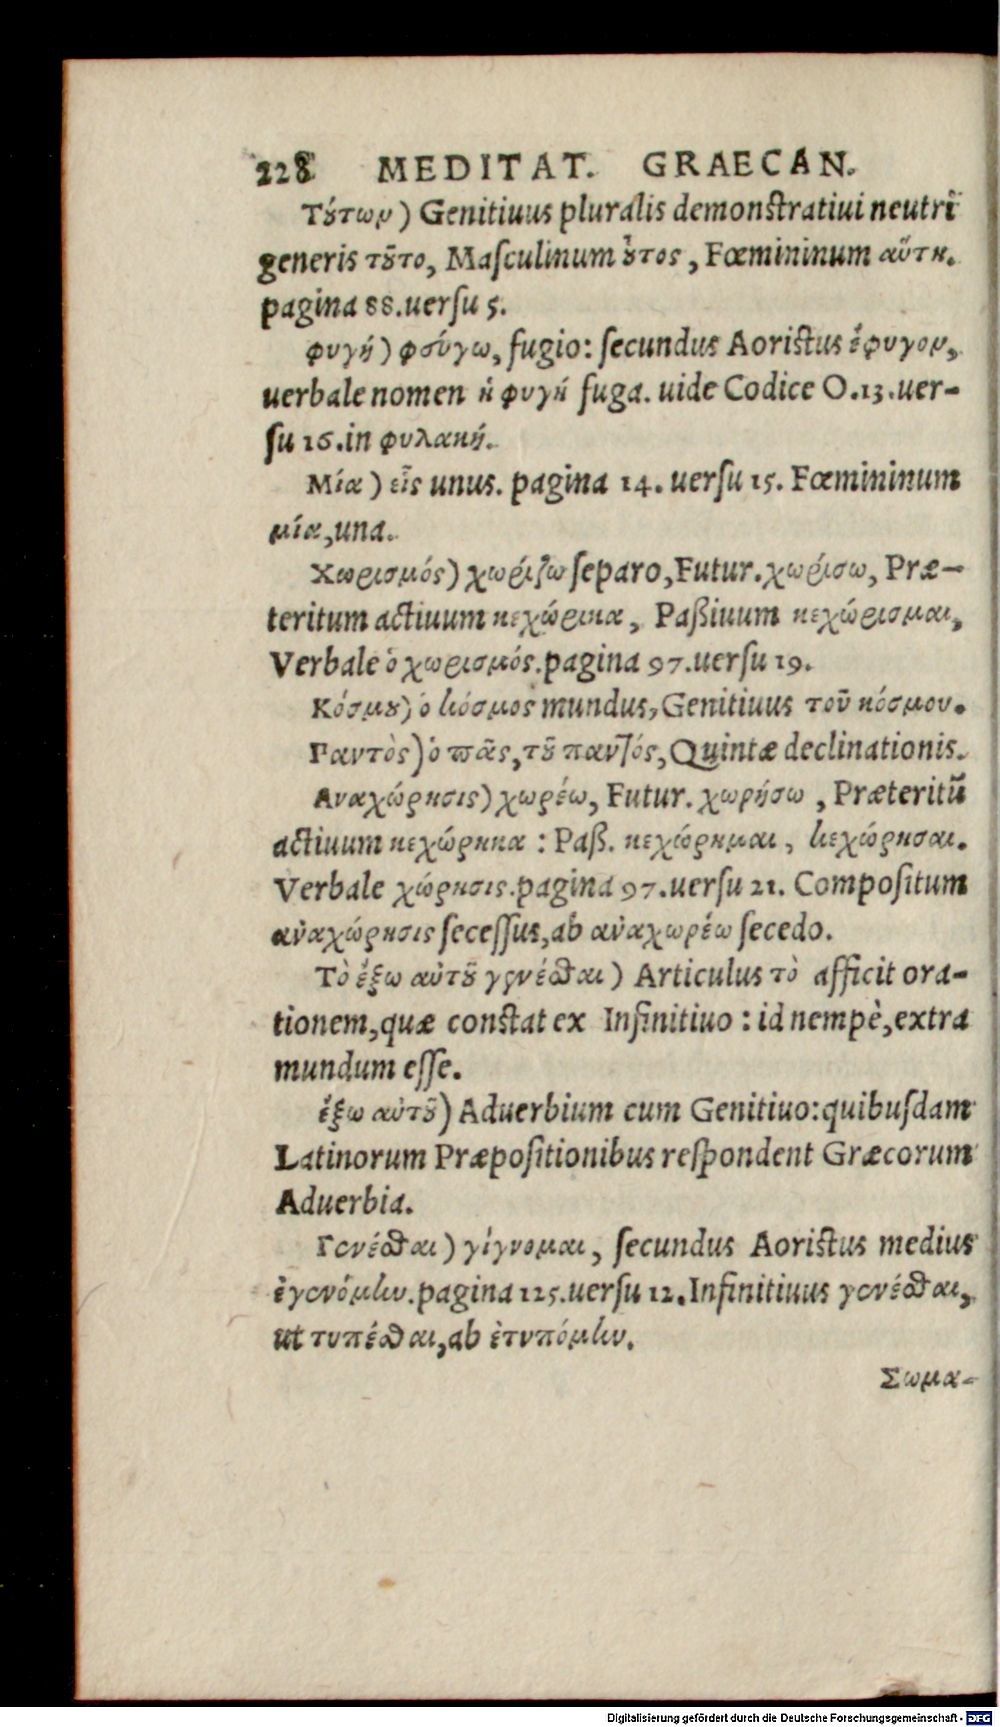 228 MEDITAT. GRAECAN.
Τȣ́των) Genitiuus pluralis demonstratiui neutri
generis τȣ͂το, Maſculinum ȣ̔͂τος, Fœmininum αὕτη.
pagina 88.uerſu 5.
φυγή) φεύγω, fugio: ſecundus Aoristus ἔφυγον,
uerbale nomen ἡ φυγή fuga. uide Codice O.13.uer-
ſu 16.in φυλακή.
Μία) εἷς unus. pagina 14. uerſu 15. Fœmininum
μία, una.
Χωρισμός) χωρίζω ſeparo, Futur. χωρίσω, Præ-
teritum actiuum κεχώρικα, Paßiuum κεχώρισμαι,
Verbale ὁ χωρισμός.pagina 97.uerſu 19.
Κόσμȣ) ὁ κόσμος mundus, Genitiuus τοῦ κόσμου.
Παντὸς) ὁ πᾶς, τȣ͂ παντός, Quintæ declinationis.
Αναχώρησις) χωρέω, Futur. χωρήσω, Præteritū
actiuum κεχώρηκα : Paß. κεχώρημαι, κεχώρησαι.
Verbale χώρησις.pagina 97.uerſu 21. Compoſitum
ἀναχώρησις ſeceſſus, ab ἀναχωρέω ſecedo.
Τὸ ἔξω αὐτȣ͂ γενέσθαι) Articulus τὸ afficit ora-
tionem, quæ constat ex Infinitiuo : id nempè, extra
mundum eſſe.
ἔξω αὐτȣ͂) Aduerbium cum Genitiuo: quibuſdam
Latinorum Præpoſitionibus reſpondent Græcorum
Aduerbia.
Γενέσθαι) γίγνομαι, ſecundus Aoristus medius
ἐγενόμην.pagina 125.uerſu 12. Infinitiuus γενέσθαι,
ut τυπέσθαι, ab ἐτυπόμην.
Σωμα-
Digitalisierung gefördert durch die Deutsche Forschungsgemeinschaft - DFG